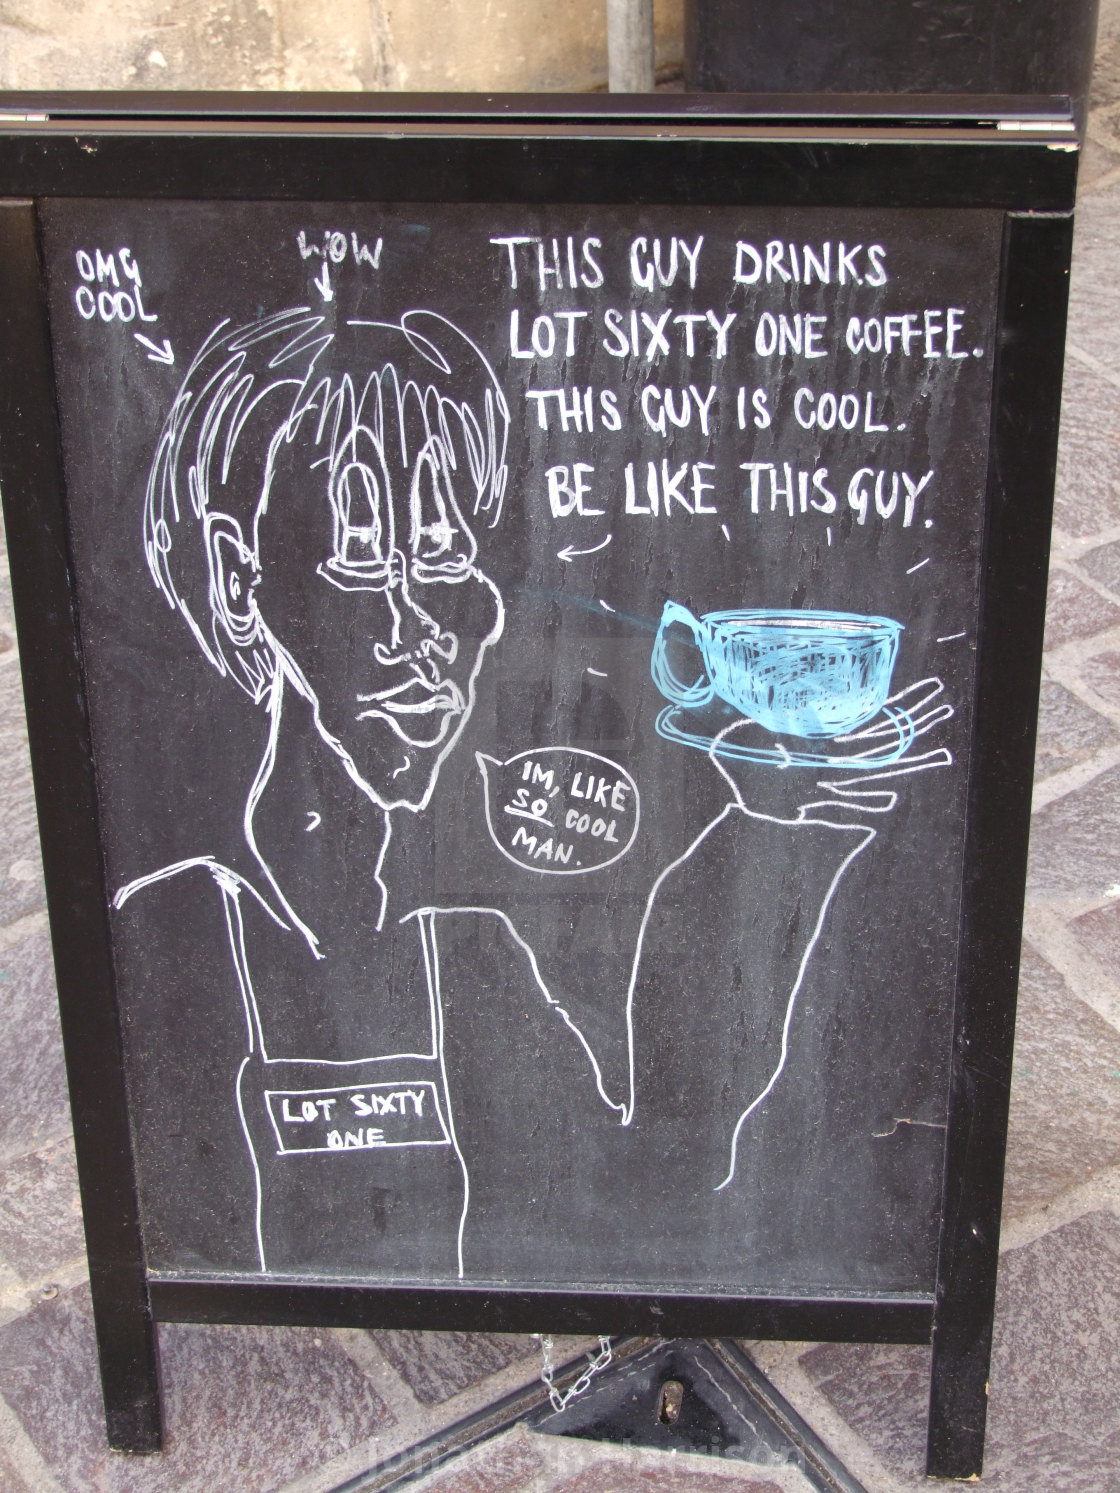 OMG
COOL
WOW
THIS GUY DRINKS
LOT SIXTY ONE COFFEE.
THIS GUY IS COOL.
BE LIKE THIS GUY.
IM, LIKE
SO COOL
MAN.
LOT SIXTY
ONE